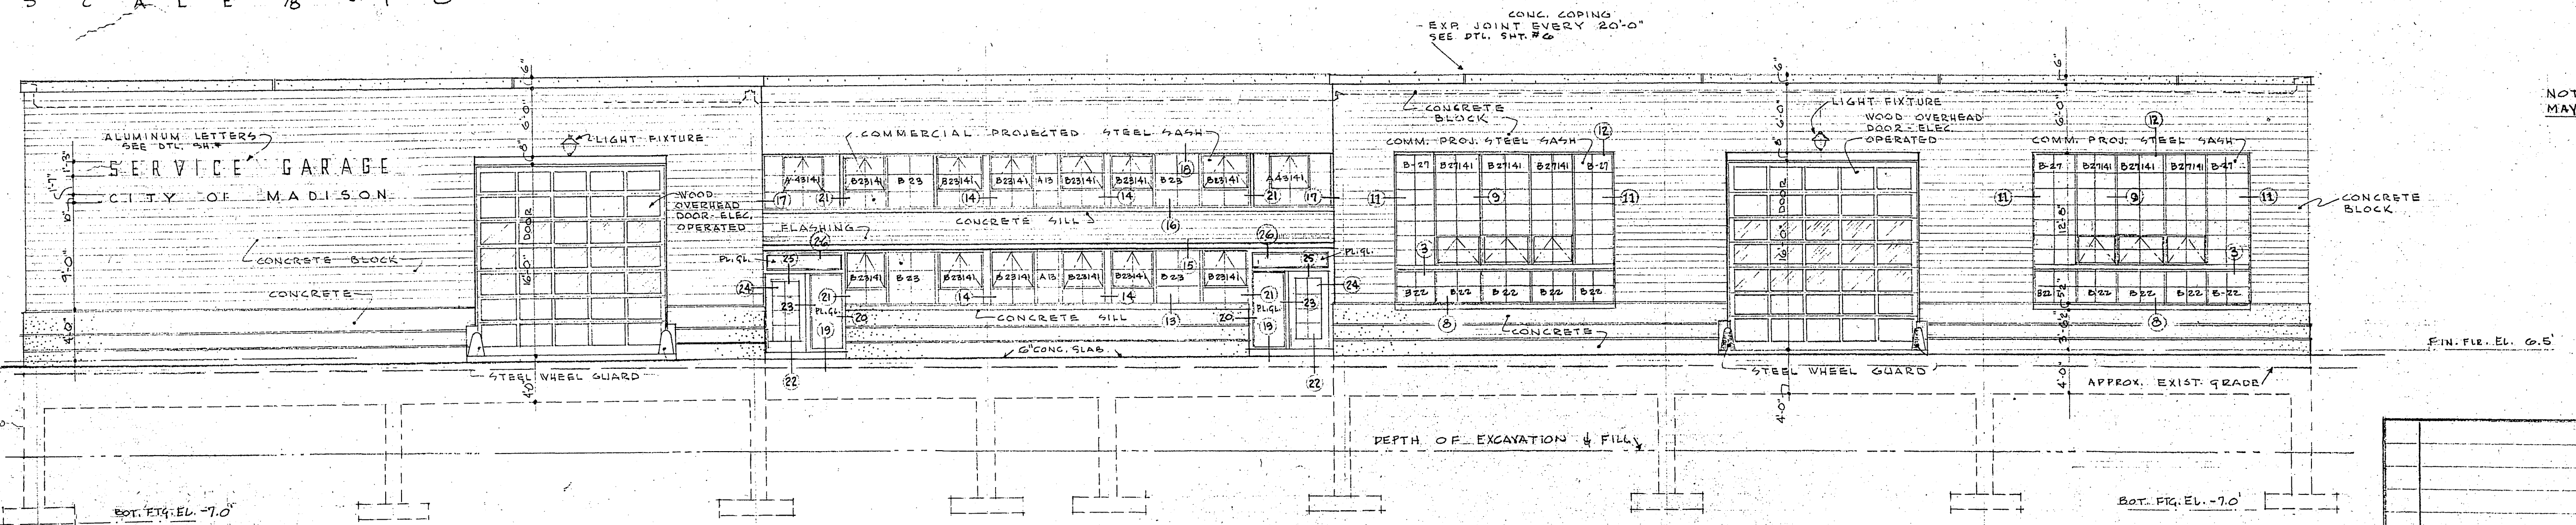 S C A L E 1/8" 1' 0
CONC. COPING
EXP. JOINT EVERY 20'-0"
SEE DTL. SHT. #6
NOT
MAY
ALUMINUM LETTERS
SEE DTL. SH.#
SERVICE GARAGE
CITY OF MADISON
1'-3"
1'-7"
10"
9'-0"
4'-0"
CONCRETE BLOCK
CONCRETE
6"
6'-0"
8"
LIGHT FIXTURE
16'-0" DOOR
WOOD
OVERHEAD
DOOR-ELEC.
OPERATED
STEEL WHEEL GUARD
4'-0"
COMMERCIAL PROJECTED STEEL SASH
A-43141 B23141 B23 B23141 B23141 A13 B23141 B23141 B23 B23141 A43141
18
17 21 14 14 16 21 17
CONCRETE SILL
FLASHING
26 26
PL.GL. 25 15 25 PL.GL.
B23141 B-23 B23141 B23141 A13 B23141 B23141 B23 B23141
24 23 21 14 14 21 23 24
PL.GL. PL.GL.
19 20 CONCRETE SILL 13 20 19
6" CONC. SLAB
22 22
CONCRETE
BLOCK
COMM. PROJ. STEEL SASH
12
B-27 B27141 B27141 B27141 B-27
11 9 11
3
B22 B22 B22 B22 B22
8
CONCRETE
6"
6'-0"
8"
LIGHT FIXTURE
WOOD OVERHEAD
DOOR-ELEC.
OPERATED
16'-0" DOOR
STEEL WHEEL GUARD
4'-0"
6"
6'-0"
12
COMM. PROJ. STEEL SASH
B-27 B27141 B27141 B27141 B-27
11 9 11
12'-8"
3
B22 B22 B22 B22 B-22
8
4'-0"
CONCRETE
BLOCK
FIN. FLR. EL. 6.5'
APPROX. EXIST. GRADE
DEPTH OF EXCAVATION & FILL
BOT. FTG. EL. -7.0'
BOT. FTG. EL. -7.0'